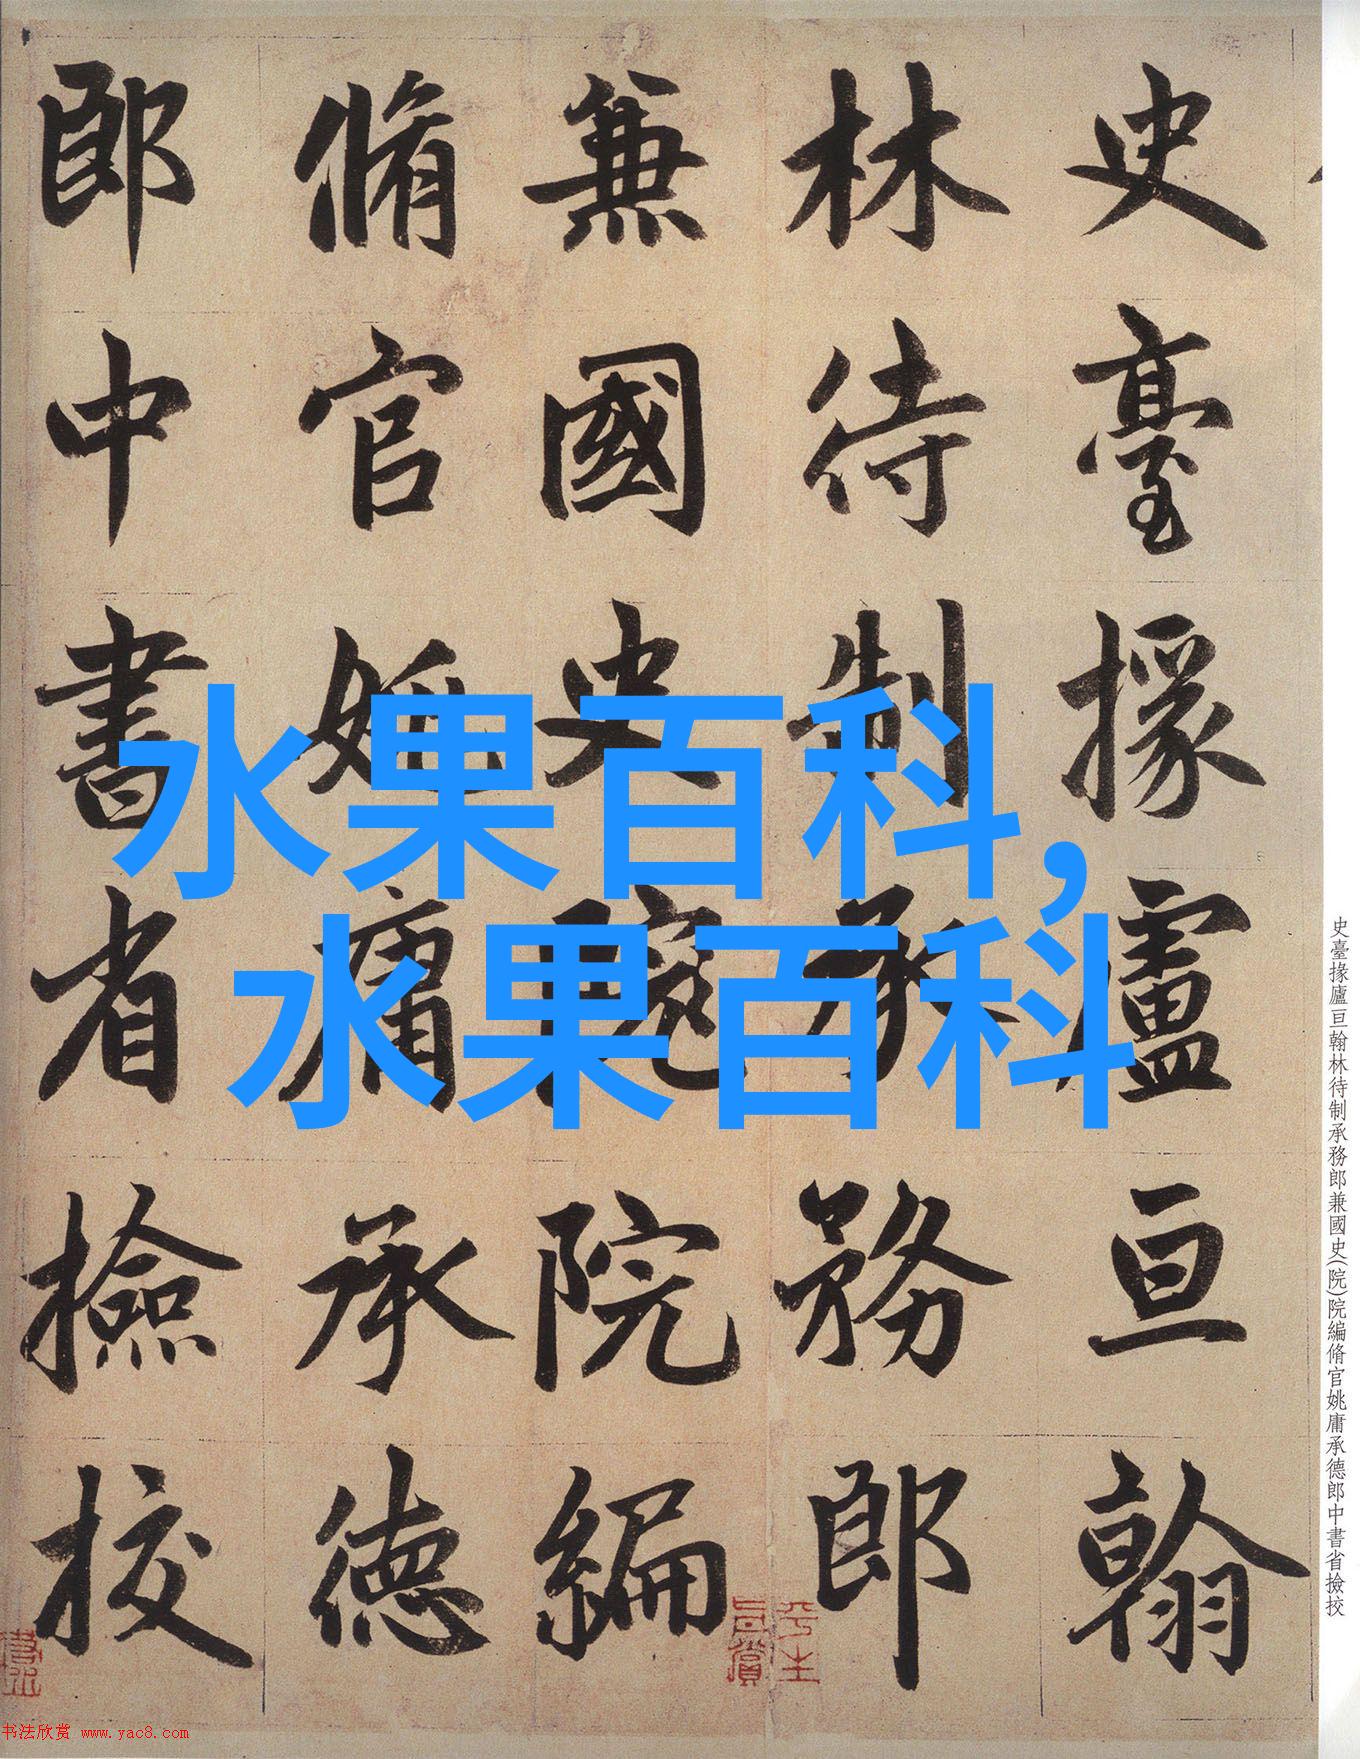 史臺掾廬亘翰
林待制承務郎
兼國史院院編
脩官姚庸承德
郎中書省撿挍
水果百科,
水果百科
史臺掾廬亘翰林待制承務郎兼國史(院)院編脩官姚庸承德郎中書省撿挍
书法欣赏 www.yac8.com